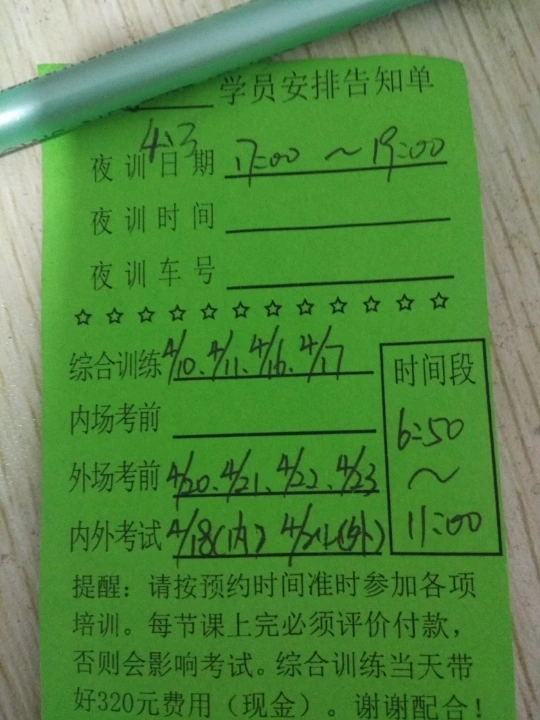 学员安排告知单
4.3
夜训日期 17:00 ~ 19:00
夜训时间
夜训车号
☆☆☆☆☆☆☆☆☆☆☆☆
综合训练 4/10、4/11、4/16、4/17
时间段
6:50
~
11:00
内场考前
外场考前 4/20、4/21、4/22、4/23
内外考试 4/18(内) 4/24(外)
提醒：请按预约时间准时参加各项
培训。每节课上完必须评价付款，
否则会影响考试。综合训练当天带
好320元费用（现金）。谢谢配合！